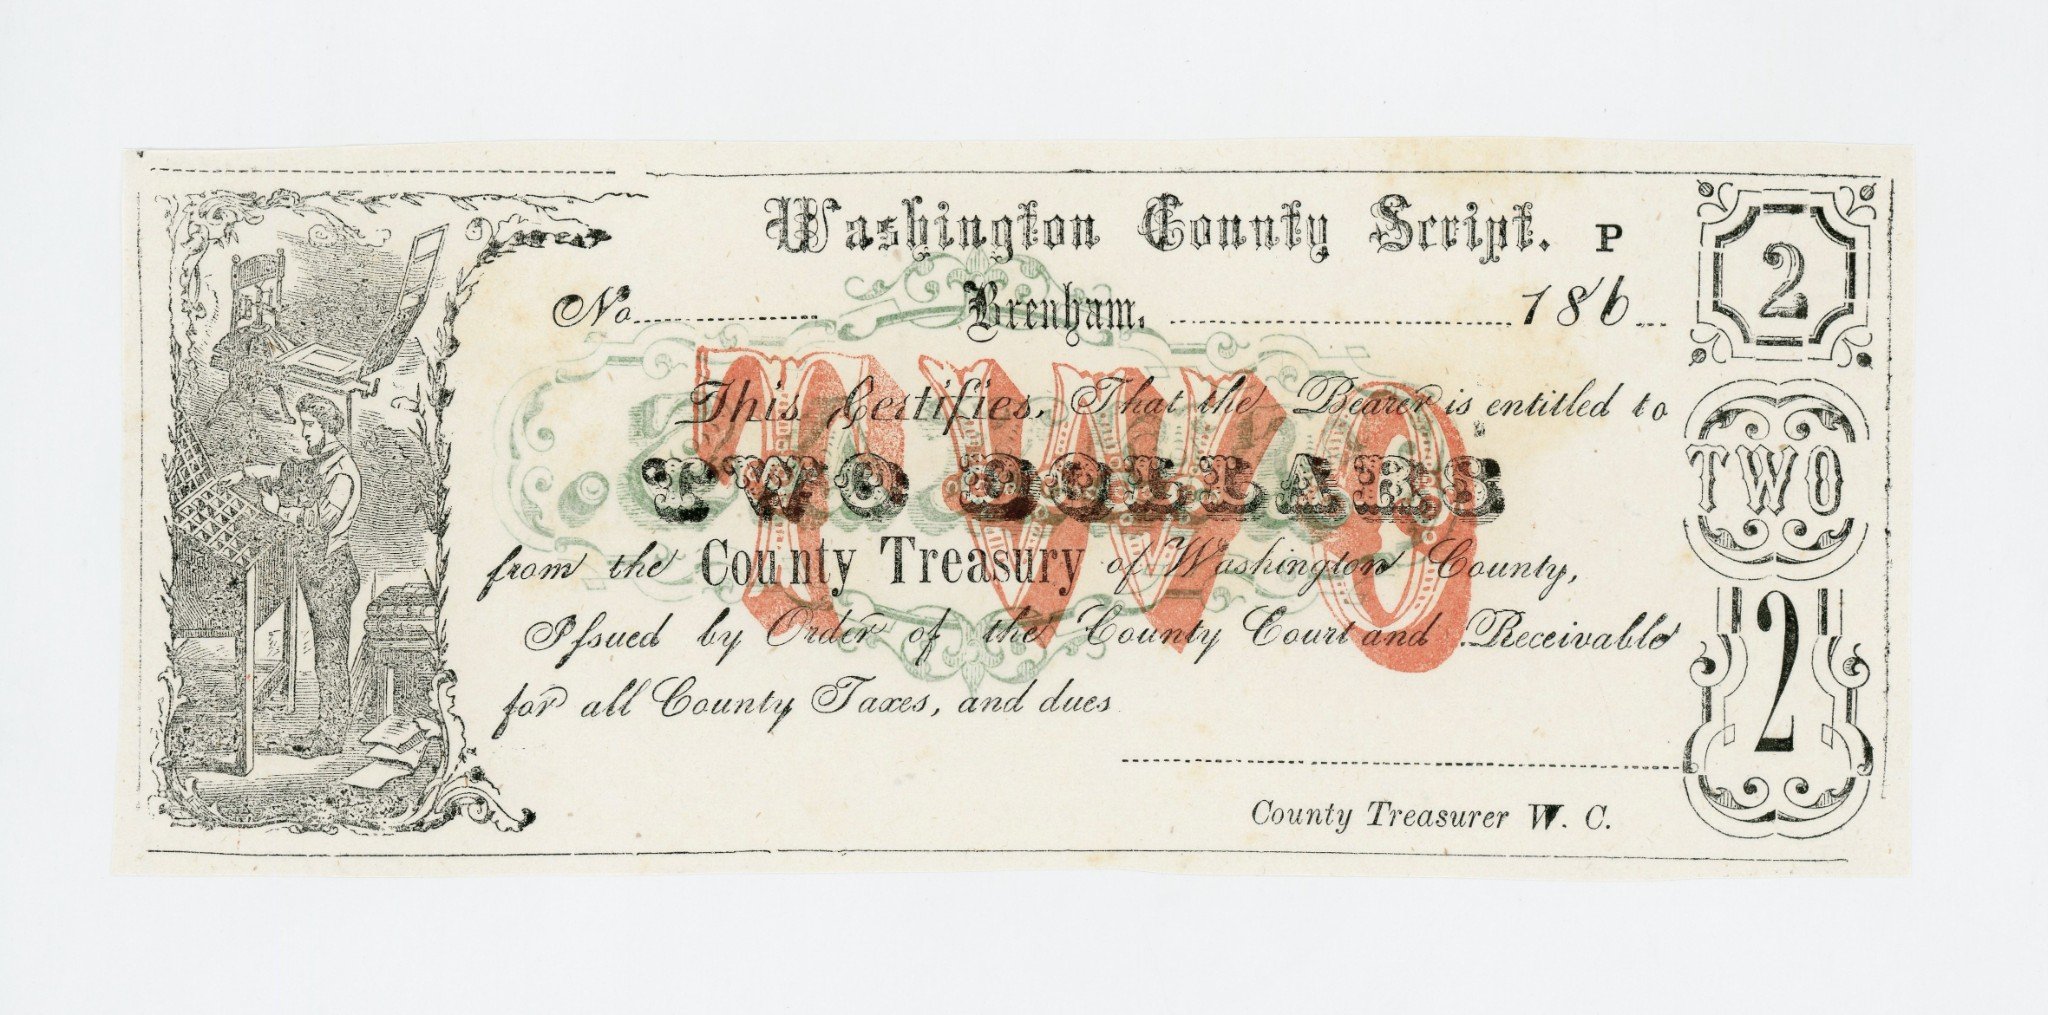 Washington County Script. P
2
No. Brenham, 186
This Certifies, That the Bearer is entitled to
TWO DOLLARS
TWO
TWO
from the County Treasury of Washington County,
Issued by Order of the County Court and Receivable
for all County Taxes, and dues
2
County Treasurer W. C.